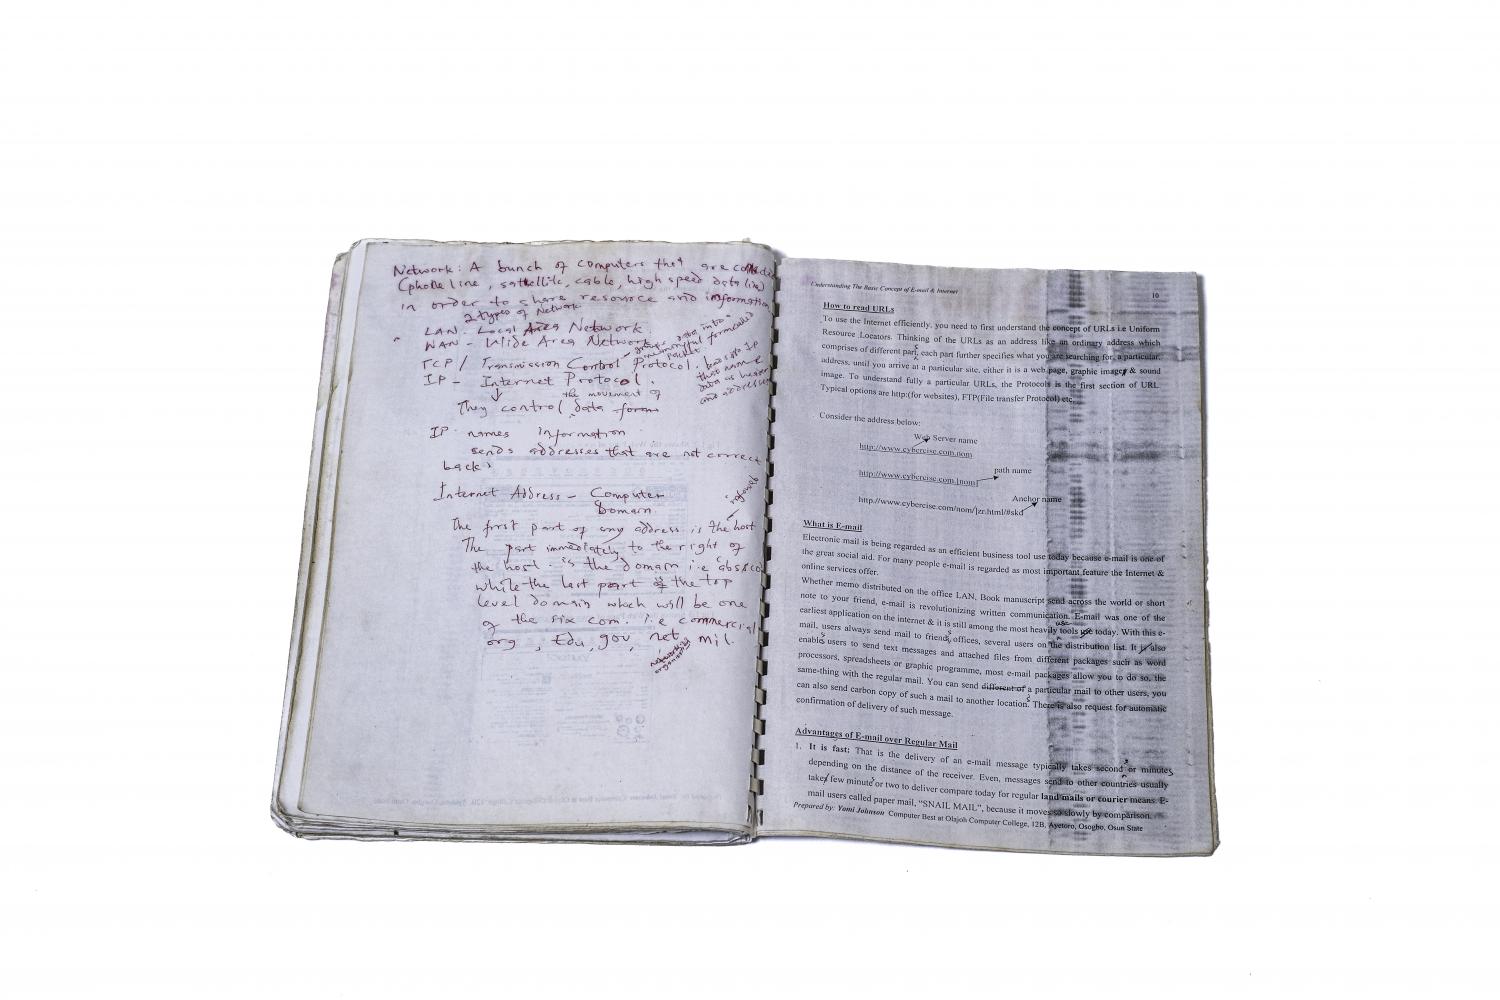 Network: A bunch of computers that are
(phone line, sattellite, cable, high speed data line)
in order to share resource and information
2 types of Network
LAN - Local Area Network.
WAN - Wide Area Network
TCP / Transmission Control Protocol.
IP - Internet Protocol.
the movement of
They control data form
IP names information
sends addresses that are not correct
back.
Internet Address - Computer
Domain.
The first part of any address is the host
The part immediately to the right of
the host is the domain i.e
while the last part is the top
level domain which will be one
of the six com. i.e commercial
org, Edu, gov, net, mil.
Understanding The Basic Concept of E-mail & Internet 10
How to read URLs
To use the Internet efficiently, you need to first understand the concept of URLs i.e Uniform
Resource Locators. Thinking of the URLs as an address like an ordinary address which
comprises of different parts, each part further specifies what you are searching for, a particular
address, until you arrive at a particular site, either it is a web page, graphic image & sound
image. To understand fully a particular URLs, the Protocols is the first section of URL
Typical options are http:(for websites), FTP(File transfer Protocol) etc.
Consider the address below:
Web Server name
http://www.cybercise.com.nom
path name
http://www.cybercise.com [nom]
Anchor name
http://www.cybercise.com/nom/jzr.html/#skd
What is E-mail
Electronic mail is being regarded as an efficient business tool use today because e-mail is one of
the great social aid. For many people e-mail is regarded as most important feature the Internet &
online services offer.
Whether memo distributed on the office LAN, Book manuscript send across the world or short
note to your friend, e-mail is revolutionizing written communication. E-mail was one of the
earliest application on the internet & it is still among the most heavily tools use today. With this e-
mail, users always send mail to friends, offices, several users on the distribution list. It is also
enables users to send text messages and attached files from different packages such as word
processors, spreadsheets or graphic programme, most e-mail packages allow you to do so, the
same-thing with the regular mail. You can send different of a particular mail to other users, you
can also send carbon copy of such a mail to another locations. There is also request for automatic
confirmation of delivery of such message.
Advantages of E-mail over Regular Mail
1. It is fast: That is the delivery of an e-mail message typically takes seconds or minutes
depending on the distance of the receiver. Even, messages send to other countries usually
take few minutes or two to deliver compare today for regular land mails or courier means. E-
mail users called paper mail, "SNAIL MAIL", because it moves so slowly by comparison.
Prepared by: Yomi Johnson Computer Best at Olajoh Computer College, 12B, Ayetoro, Osogbo, Osun State